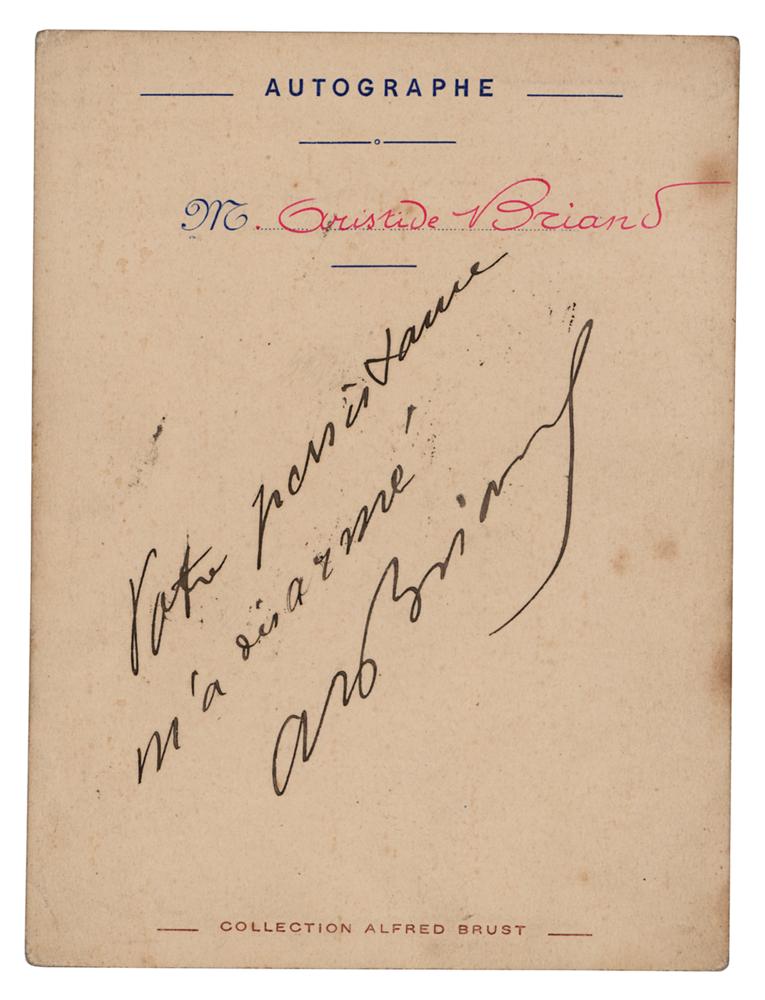 AUTOGRAPHE
M. Aristide Briand
Votre persistance
m'a désarmé!
Ar Briand
COLLECTION ALFRED BRUST